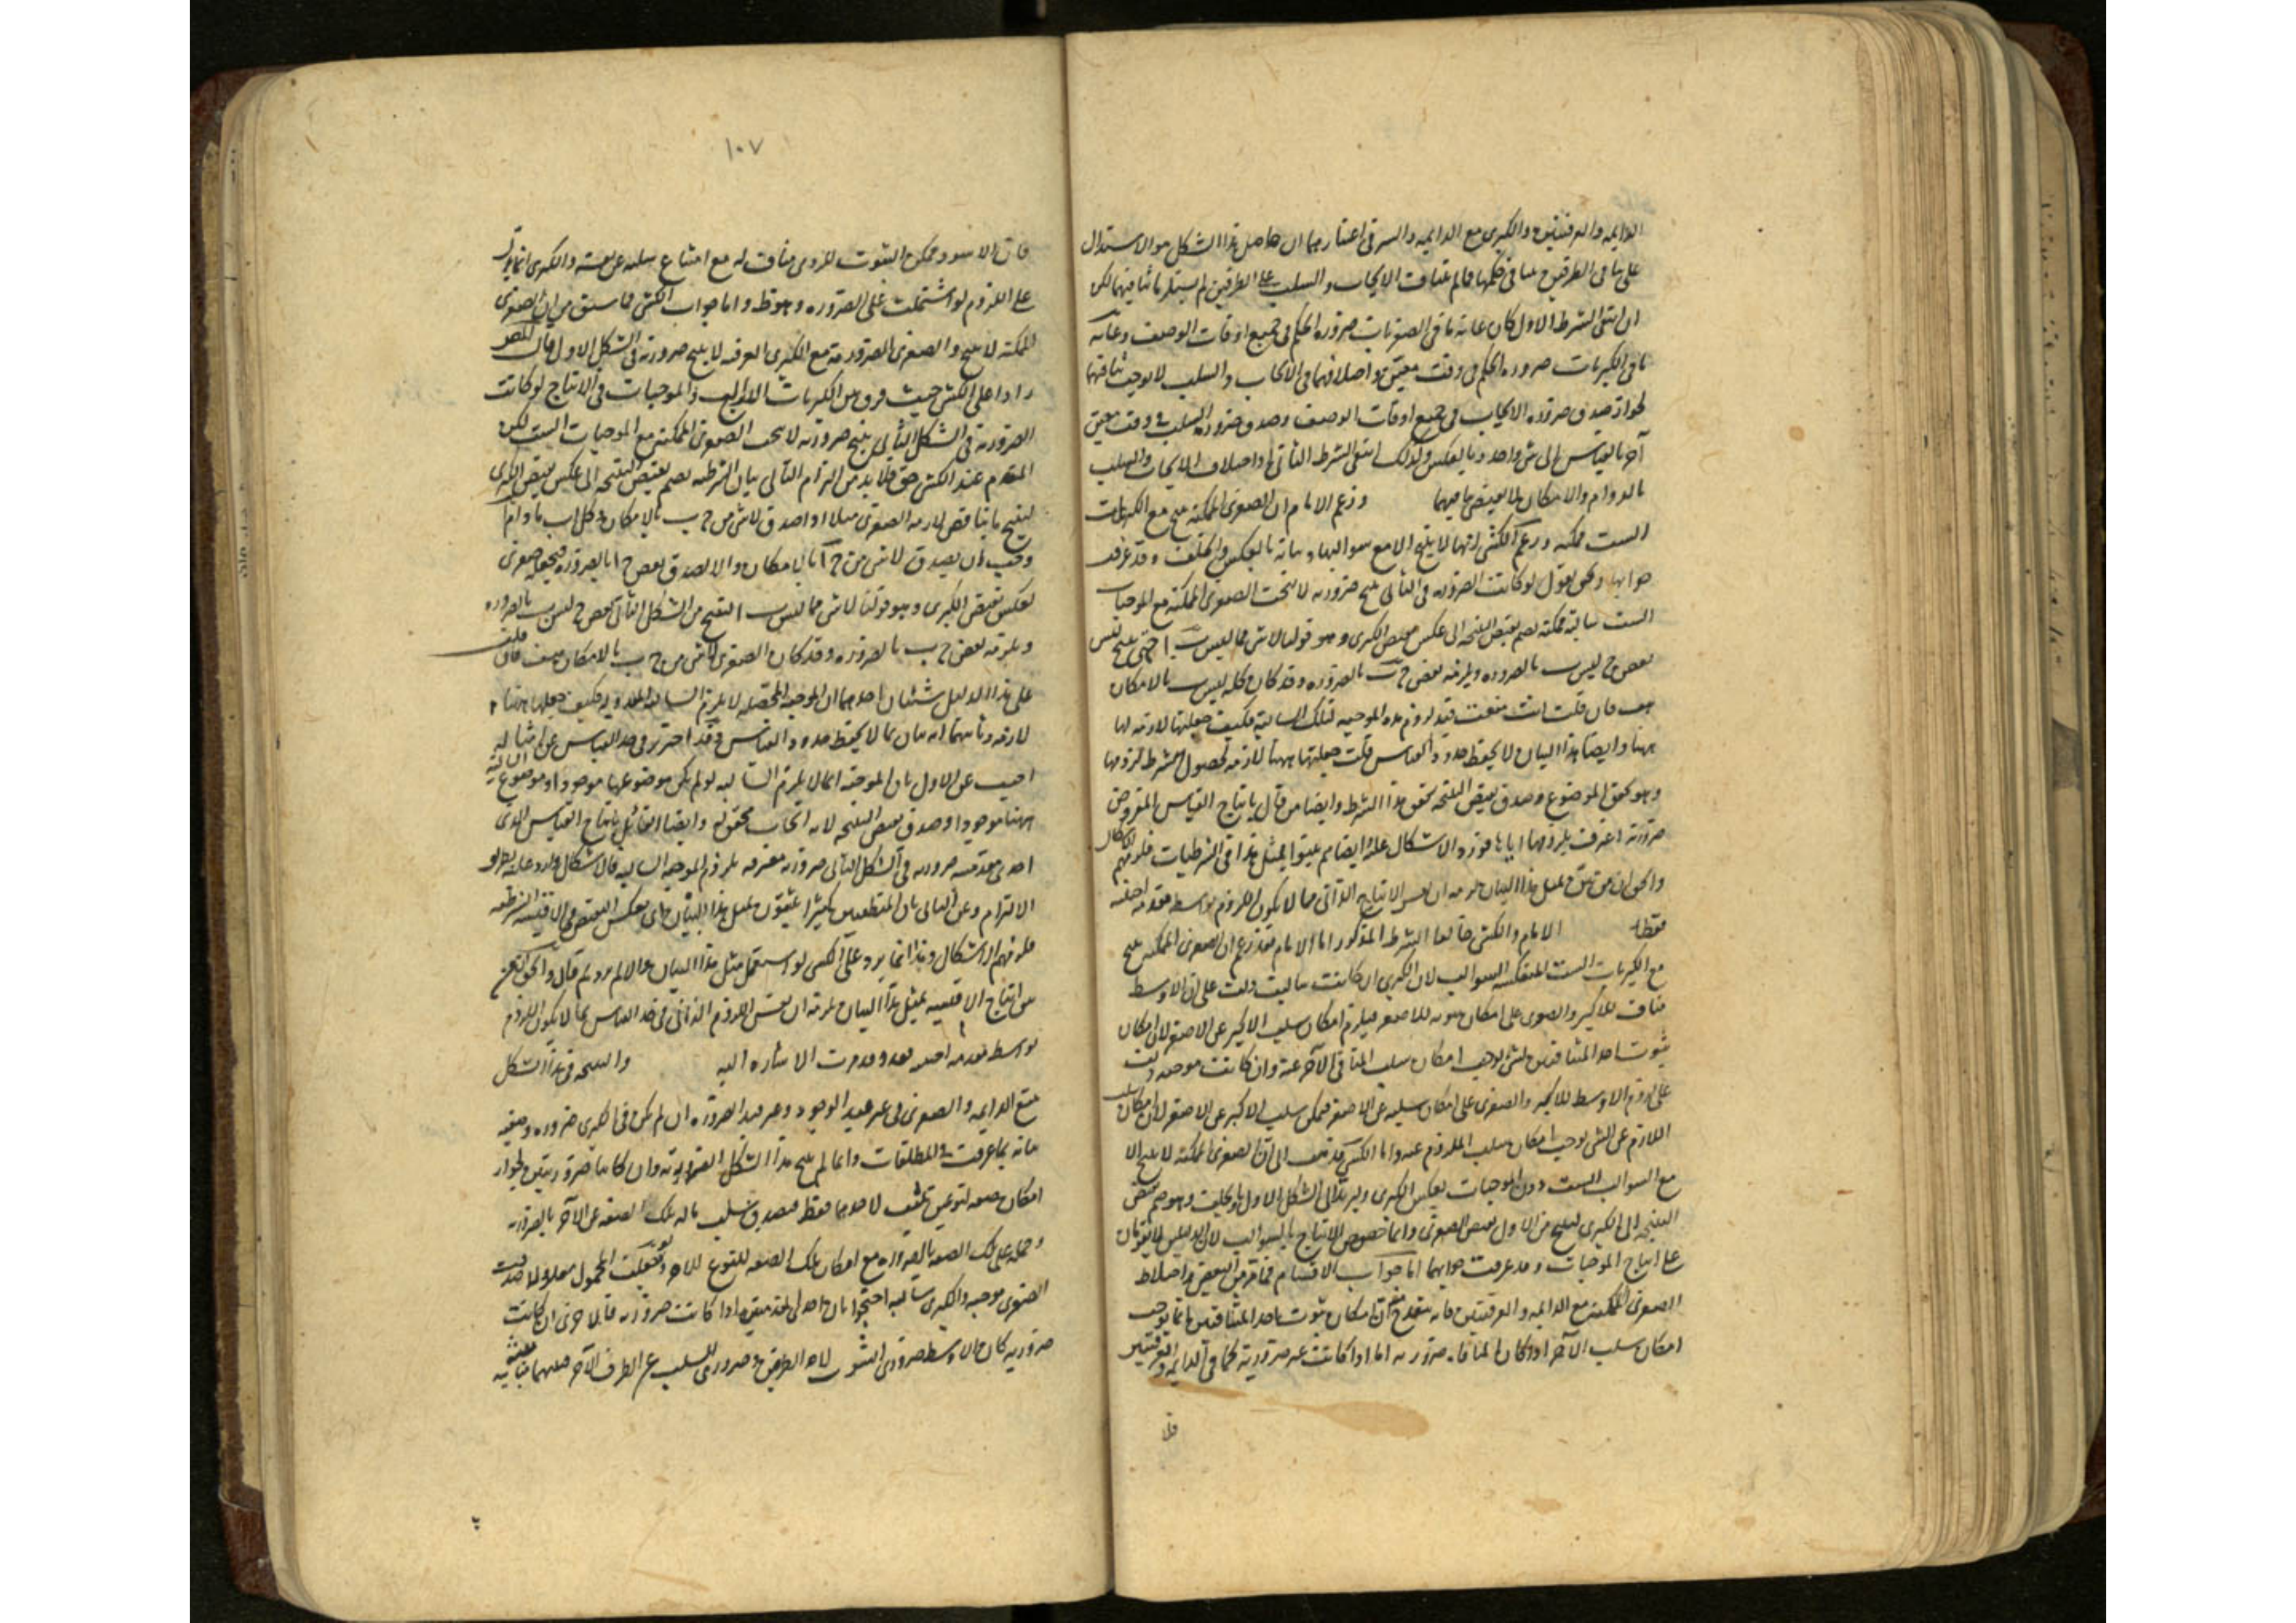 الدايمه والعرفيتين والكبرى مع الدايمه والسر فى اعتبارهما ان حاصل هذا الشكل هو الاستدلال
على تنافى الطرفين فى حكمها فما لم يتناف الايجاب والسلب على الطرفين لم يستلزما تنافيهما لكن
ان انتفى الشرط الاول كان غاية ما فى الصغريات ضرورة الحكم فى جميع اوقات الوصف وغاية
ما فى الكبريات ضرورة الحكم فى وقت معين واختلافهما فى الايجاب والسلب لا يوجب تنافيهما
لجواز صدق ضرورة الايجاب فى جميع اوقات الوصف وصدق ضرورة السلب فى وقت معين
آخر بالقياس الى شى واحد وبالعكس وكذلك انتفى الشرط الثانى اذ اختلاف الايجاب والسلب
بالدوام والامكان لا يقتضى تنافيهما وزعم الامام ان الصغرى الممكنة تنتج مع الكبريات
الست ممكنه وزعم الكشى انها لا ينتج الا مع سوالبها وبيانه بالعكس والخلف وقد عرفت
جوابها ونحن نقول لو كانت الضروريه فى الثانى تنتج ضروريه لانتجت الصغرى الممكنة مع الموجبات
الست سالبة ممكنه بضم نقيض النتيجه الى عكس نقيض الكبرى وهو قولنا لا شى مما ليس ب ا حتى ينتج ليس
بعض ج ليس ب بالضروره ويلزمه بعض ج ب بالضروره وقد كان كله ليس ب بالامكان
هف فان قلت انت منعت قبل لزوم هذه الموجبه لتلك السالبة فكيف جعلتها لازمه لها
ههنا وايضا هذا البيان لا يحفظ حدود القياس قلت جعلتها ههنا لازمه لحصول شرط لزومها
وهو تحقق الموضوع وصدق نقيض النتيجه تحقق هذا الشرط وايضا من قال بانتاج القياس المفروض
ضرورية اعترف بلزومها اياها فورد الاشكال عليه وايضا هم بينوا بمثل هذا فى الشرطيات فلزمهم الاشكال
والحق ان من بين بمثل هذا البيان لزمه ان يفسر الانتاج الذاتى بما لا يكون اللزوم بواسطه مقدمه اجنبيه
فقط الامام والكشى خالفا الشرط المذكور اما الامام فقد زعم ان الصغرى الممكنه تنتج
مع الكبريات الست المنعكسه السوالب لان الكبرى ان كانت سالبة دلت على ان الاوسط
مناف للاكبر والصغرى على امكان ثبوته للاصغر فيلزم امكان سلب الاكبر عن الاصغر لان امكان
ثبوت احد المتنافيين لشى يوجب امكان سلب المنافى الآخر عنه وان كانت موجبه دلت
على لزوم الاوسط للاكبر والصغرى على امكان سلبه عن الاصغر فيمكن سلب الاكبر عن الاصغر لان امكان سلب
اللازم عن الشى يوجب امكان سلب الملزوم عنه واما الكشى فذهب الى ان الصغرى الممكنة لا تنتج الا
مع السوالب الست دون الموجبات بعكس الكبرى وليرتد الى الشكل الاول او بالخلف وهو ضم نقيض
النتيجه الى الكبرى لينتج من الاول نقيض الصغرى وانما خصوص الانتاج بالسوالب لان الدليلين لا يقومان
على انتاج الموجبات وقد عرفت جوابهما اما جواب الامام فما مر فى النقض باختلاط
الصغرى الممكنه مع الدايمه والعرفيتين فانه يقدح فى ان امكان ثبوت احد المتنافيين انما يوجب
امكان سلب الآخر اذا كان المنافاة ضروريه اما اذا كانت غير ضرورية كما فى الدايمه والعرفيتين
فلا
١٠٧
فان الاسود ممكن الثبوت للرومى مناف له مع امتناع سلبه عن نفسه والكبرى انما يدل
على اللزوم لو اشتملت على الضروره وهو ظ واما جواب الكشى فما سبق من ان الصغرى
الممكنه لا ينتج والصغرى الضرورية مع الكبرى العرفيه لا ينتج ضرورية فى الشكل الاول قال المص
رادا على الكشى حيث فرق بين الكبريات السوالب والموجبات فى الانتاج لو كانت
الضرورية فى الشكل الثانى ينتج ضروريه لانتجت الصغرى الممكنه مع الموجبات الست لكن
المقدم عند الكشى حق فلا بد من التزام التالى بيان الشرطيه بضم نقيض النتيجه الى عكس نقيض الكبرى
لينتج ما يناقض لازمه الصغرى مثلا اذا صدق لا شى من ج ب بالامكان وكل ا ب ما دام ا
وجب ان يصدق لا شى من ج ا بالامكان والا لصدق بعض ج ا بالضروره فيجعله صغرى
لعكس نقيض الكبرى وهو قولنا لا شى مما ليس ب ا لينتج من الشكل الثانى بعض ج ليس ليس ب بالضروره
ويلزمه بعض ج ب بالضروره وقد كان الصغرى لا شى من ج ب بالامكان هف فان قلت
على هذا الدليل شيئان احدهما ان الموجبه المحصله لا يلزم السالبه المعدوله فكيف جعلها ههنا
لازمه وثانيهما انه بيان بما لا يحفظ حدود القياس وقد احترز فى حد القياس عن امثاله
اجيب عن الاول بان الموجبه انما لا يلزم السالبه لو لم يكن موضوعها موجودا وموضوع السالبة
ههنا موجود اذ صدق نقيض النتيجه لانه ايجاب تحقق له وايضا القائل بانتاج القياس الذى
احدى مقدمتيه ضروريه فى الشكل الثانى ضروريه معترف بلزوم الموجبه السالبه فالاشكال وارد عليه بطريق
الالتزام وعن الثانى بان المنطقيين كثيرا يبينون بمثل هذا البيان اى بعكس النقيض فى الاقيسه الشرطيه
فلزمهم الاشكال وهذا انما يرد على الكشى لو استعمل مثل هذا البيان والا لم يرد ثم قال والحق ان من
بين انتاج الاقيسه بمثل هذا البيان لزمه ان يفسر اللزوم الذاتى فى حد القياس بما لا يكون اللزوم
بواسطه مقدمه اجنبيه بعد وقد مرت الاشاره اليه والنتيجه فى هذا الشكل
تتبع الدايمه والصغرى فى غير قيد الوجود وغير قيد الضروره ان لم تكن فى الكبرى ضروره وصفيه
بيانه بما عرفت فى المطلقات وانما لم ينتج هذا الشكل الضرورية وان كانتا ضروريتين لجواز
امكان صفه لنوعين تثبت لاحدهما فقط فيصدق سلب ما له تلك الصفه عن الآخر بالضروره
وحمله على تلك الصفه بالضروره مع امكان تلك الصفه للنوع الآخر
الصغرى موجبه والكبرى سالبه احتجوا بان احدى المقدمتين اذا كانت ضروريه فالاخرى ان كانت
ضروريه كان الاوسط ضرورى الثبوت لاحد الطرفين وضرورى السلب عن الطرف الآخر فبينهما مباينه